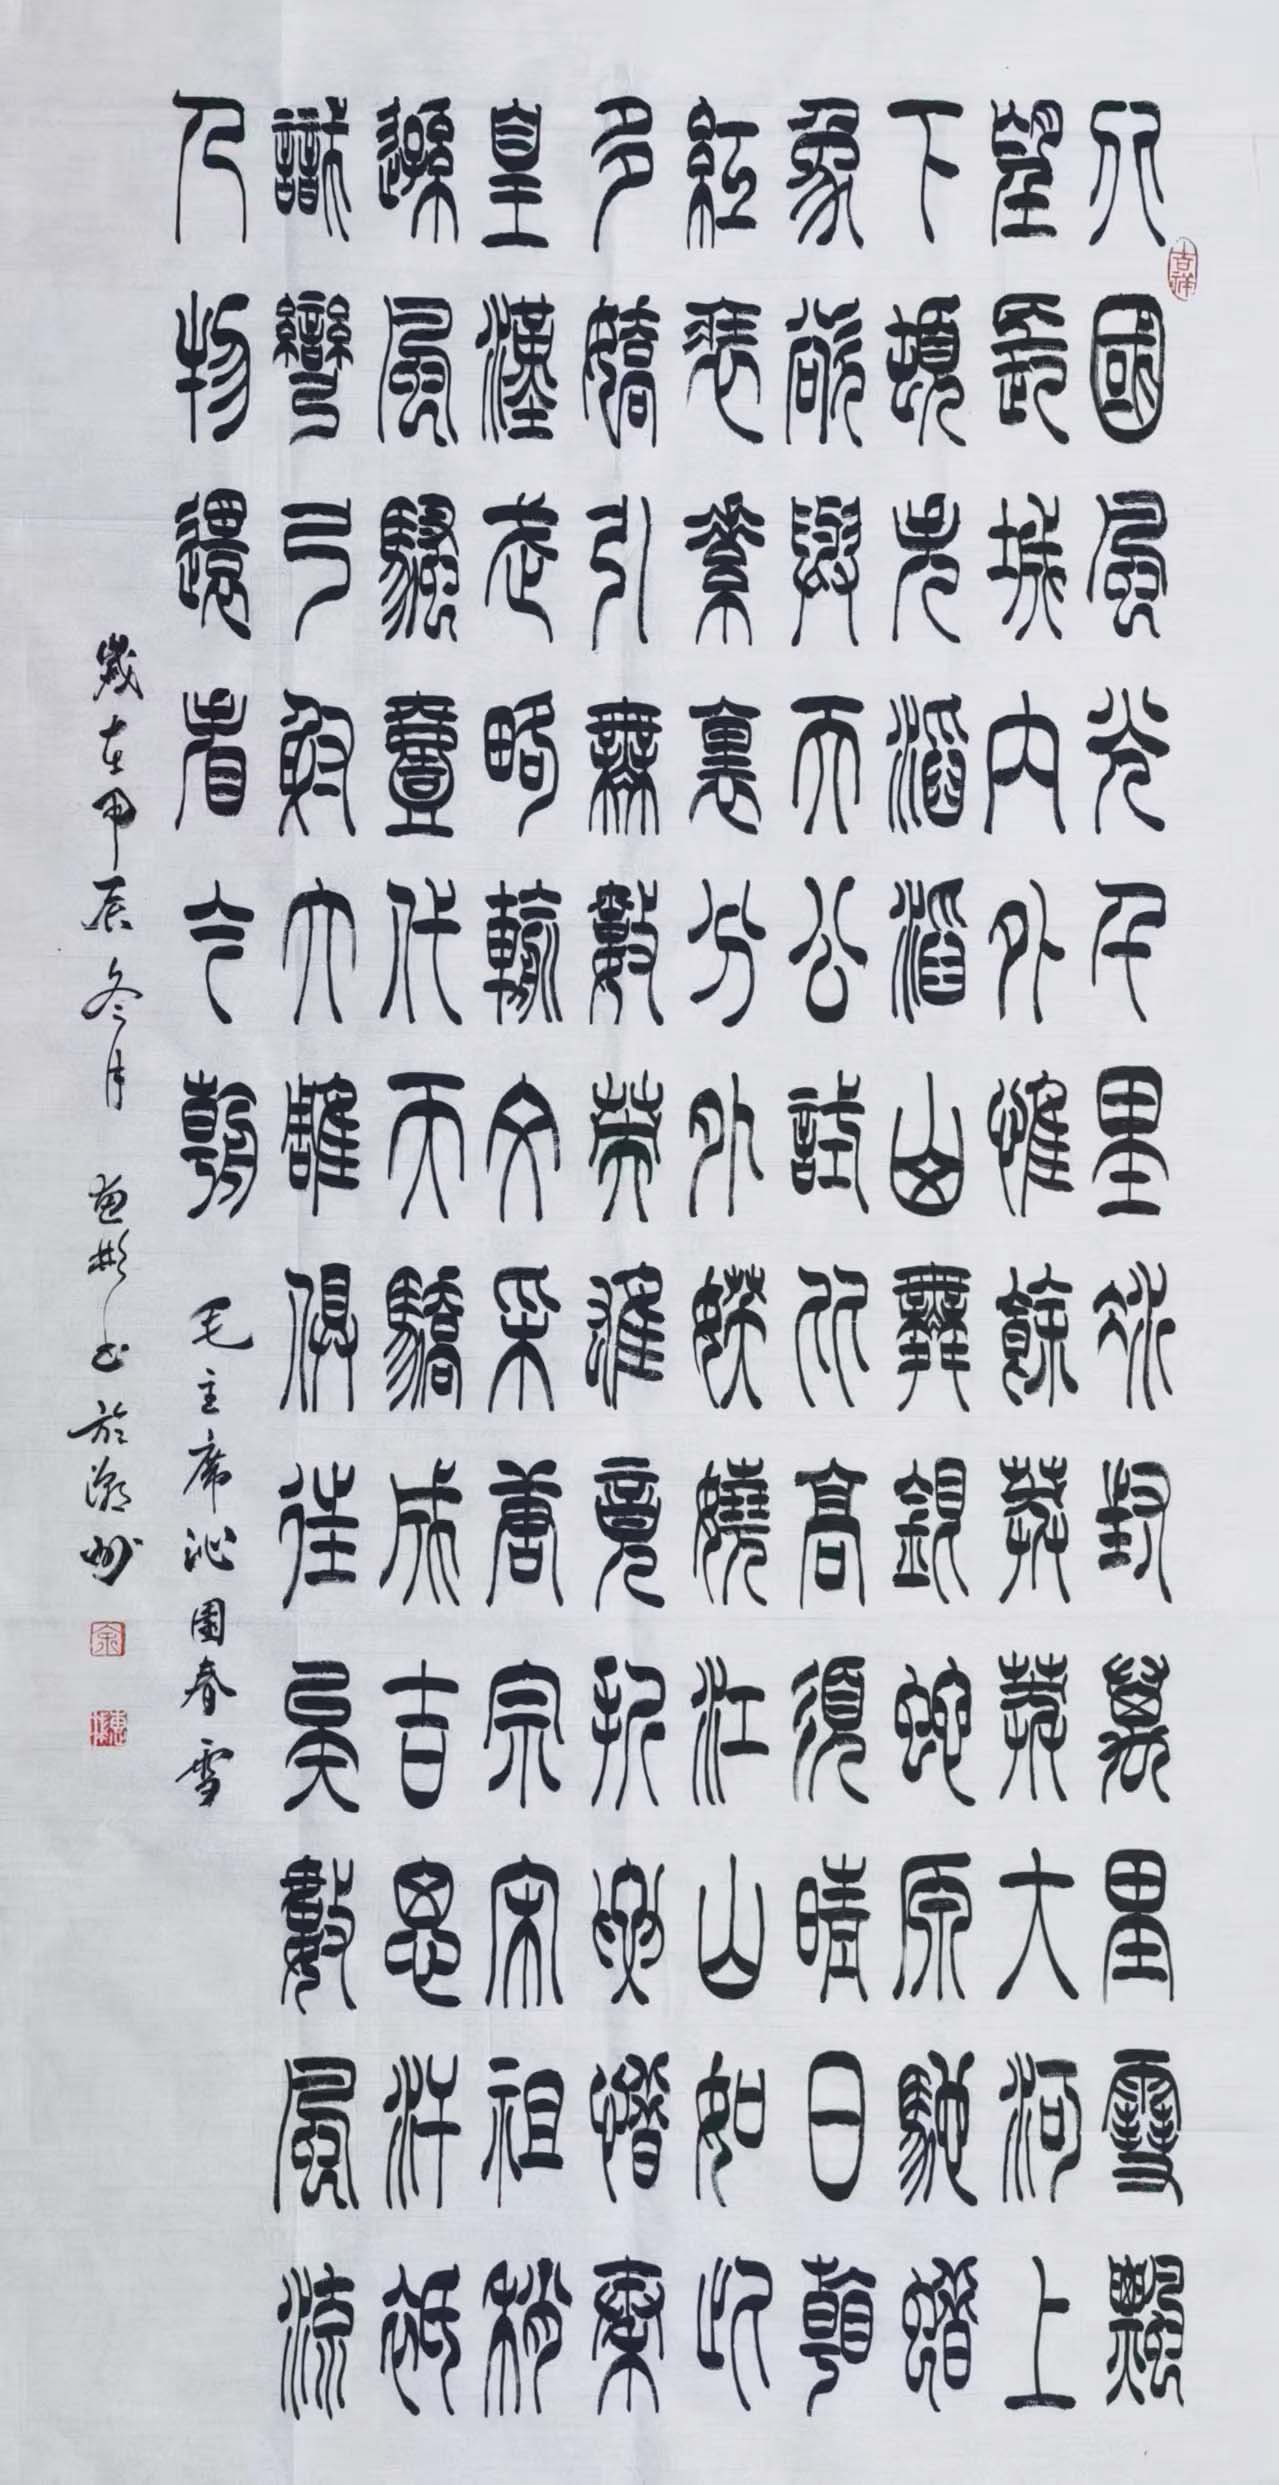 吉祥
北國風光千里冰封萬里雪飄
望長城內外惟餘莽莽大河上
下頓失滔滔山舞銀蛇原馳蠟
象欲與天公試比高須晴日看
紅裝素裹分外妖嬈江山如此
多嬌引無數英雄競折腰惜秦
皇漢武略輸文采唐宗宋祖稍
遜風騷壹代天驕成吉思汗祇
識彎弓射大雕俱往矣數風流
人物還看今朝 毛主席沁園春雪
歲在甲辰冬月 惠彬書於潮州
余